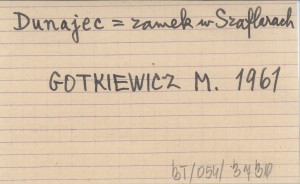 Dunajec = zamek w Szaflarach
GOTKIEWICZ M. 1961